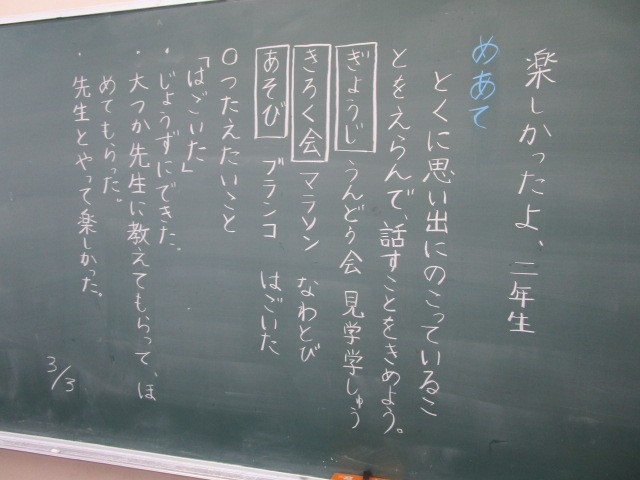 楽しかったよ、二年生
めあて
とくに思い出にのこっているこ
とをえらんで、話すことをきめよう。
ぎょうじ うんどう会 見学学しゅう
きろく会 マラソン なわとび
あそび ブランコ はごいた
○つたえたいこと
「はごいた」
・じょうずにできた。
・大つか先生に教えてもらって、ほ
めてもらった。
・先生とやって楽しかった。
3/3